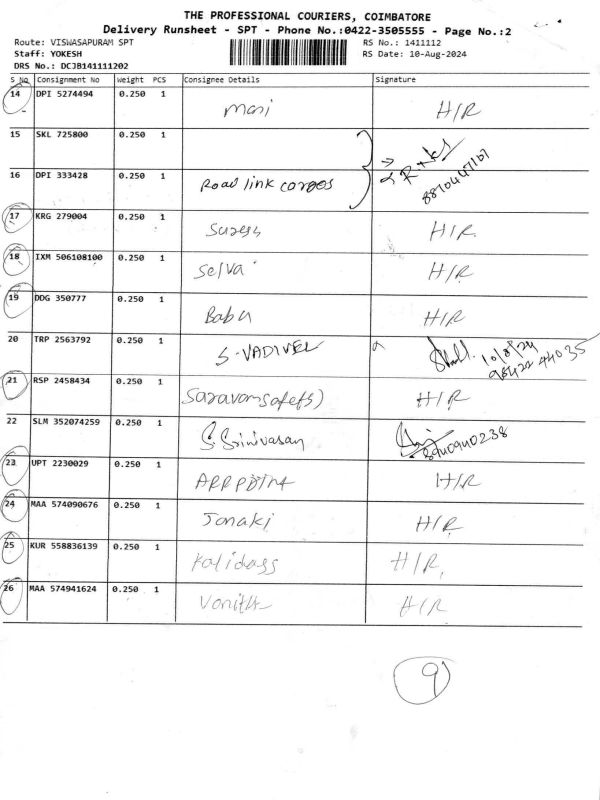 THE PROFESSIONAL COURIERS, COIMBATORE
Delivery Runsheet - SPT - Phone No.:0422-3505555 - Page No.:2
Route: VISWASAPURAM SPT RS No.: 1411112
Staff: YOKESH RS Date: 10-Aug-2024
DRS No.: DCJB141111202
S No Consignment No Weight PCS Consignee Details Signature
14 DPI 5274494 0.250 1 mani H/R
15 SKL 725800 0.250 1
16 DPI 333428 0.250 1 Road link cargos
17 KRG 279004 0.250 1 Suresh H/R
18 IXM 506108100 0.250 1 Selva H/R
19 DDG 350777 0.250 1 Babu H/R
20 TRP 2563792 0.250 1 S.VADIVEL 10/8/24
98422 44035
21 RSP 2458434 0.250 1 H/R
22 SLM 352074259 0.250 1 S.Srinivasan 8940940238
23 UPT 2230029 0.250 1 H/R
24 MAA 574090676 0.250 1 Janaki H/R
25 KUR 558836139 0.250 1 Kalidass H/R
26 MAA 574941624 0.250 1 Vanitha H/R
9